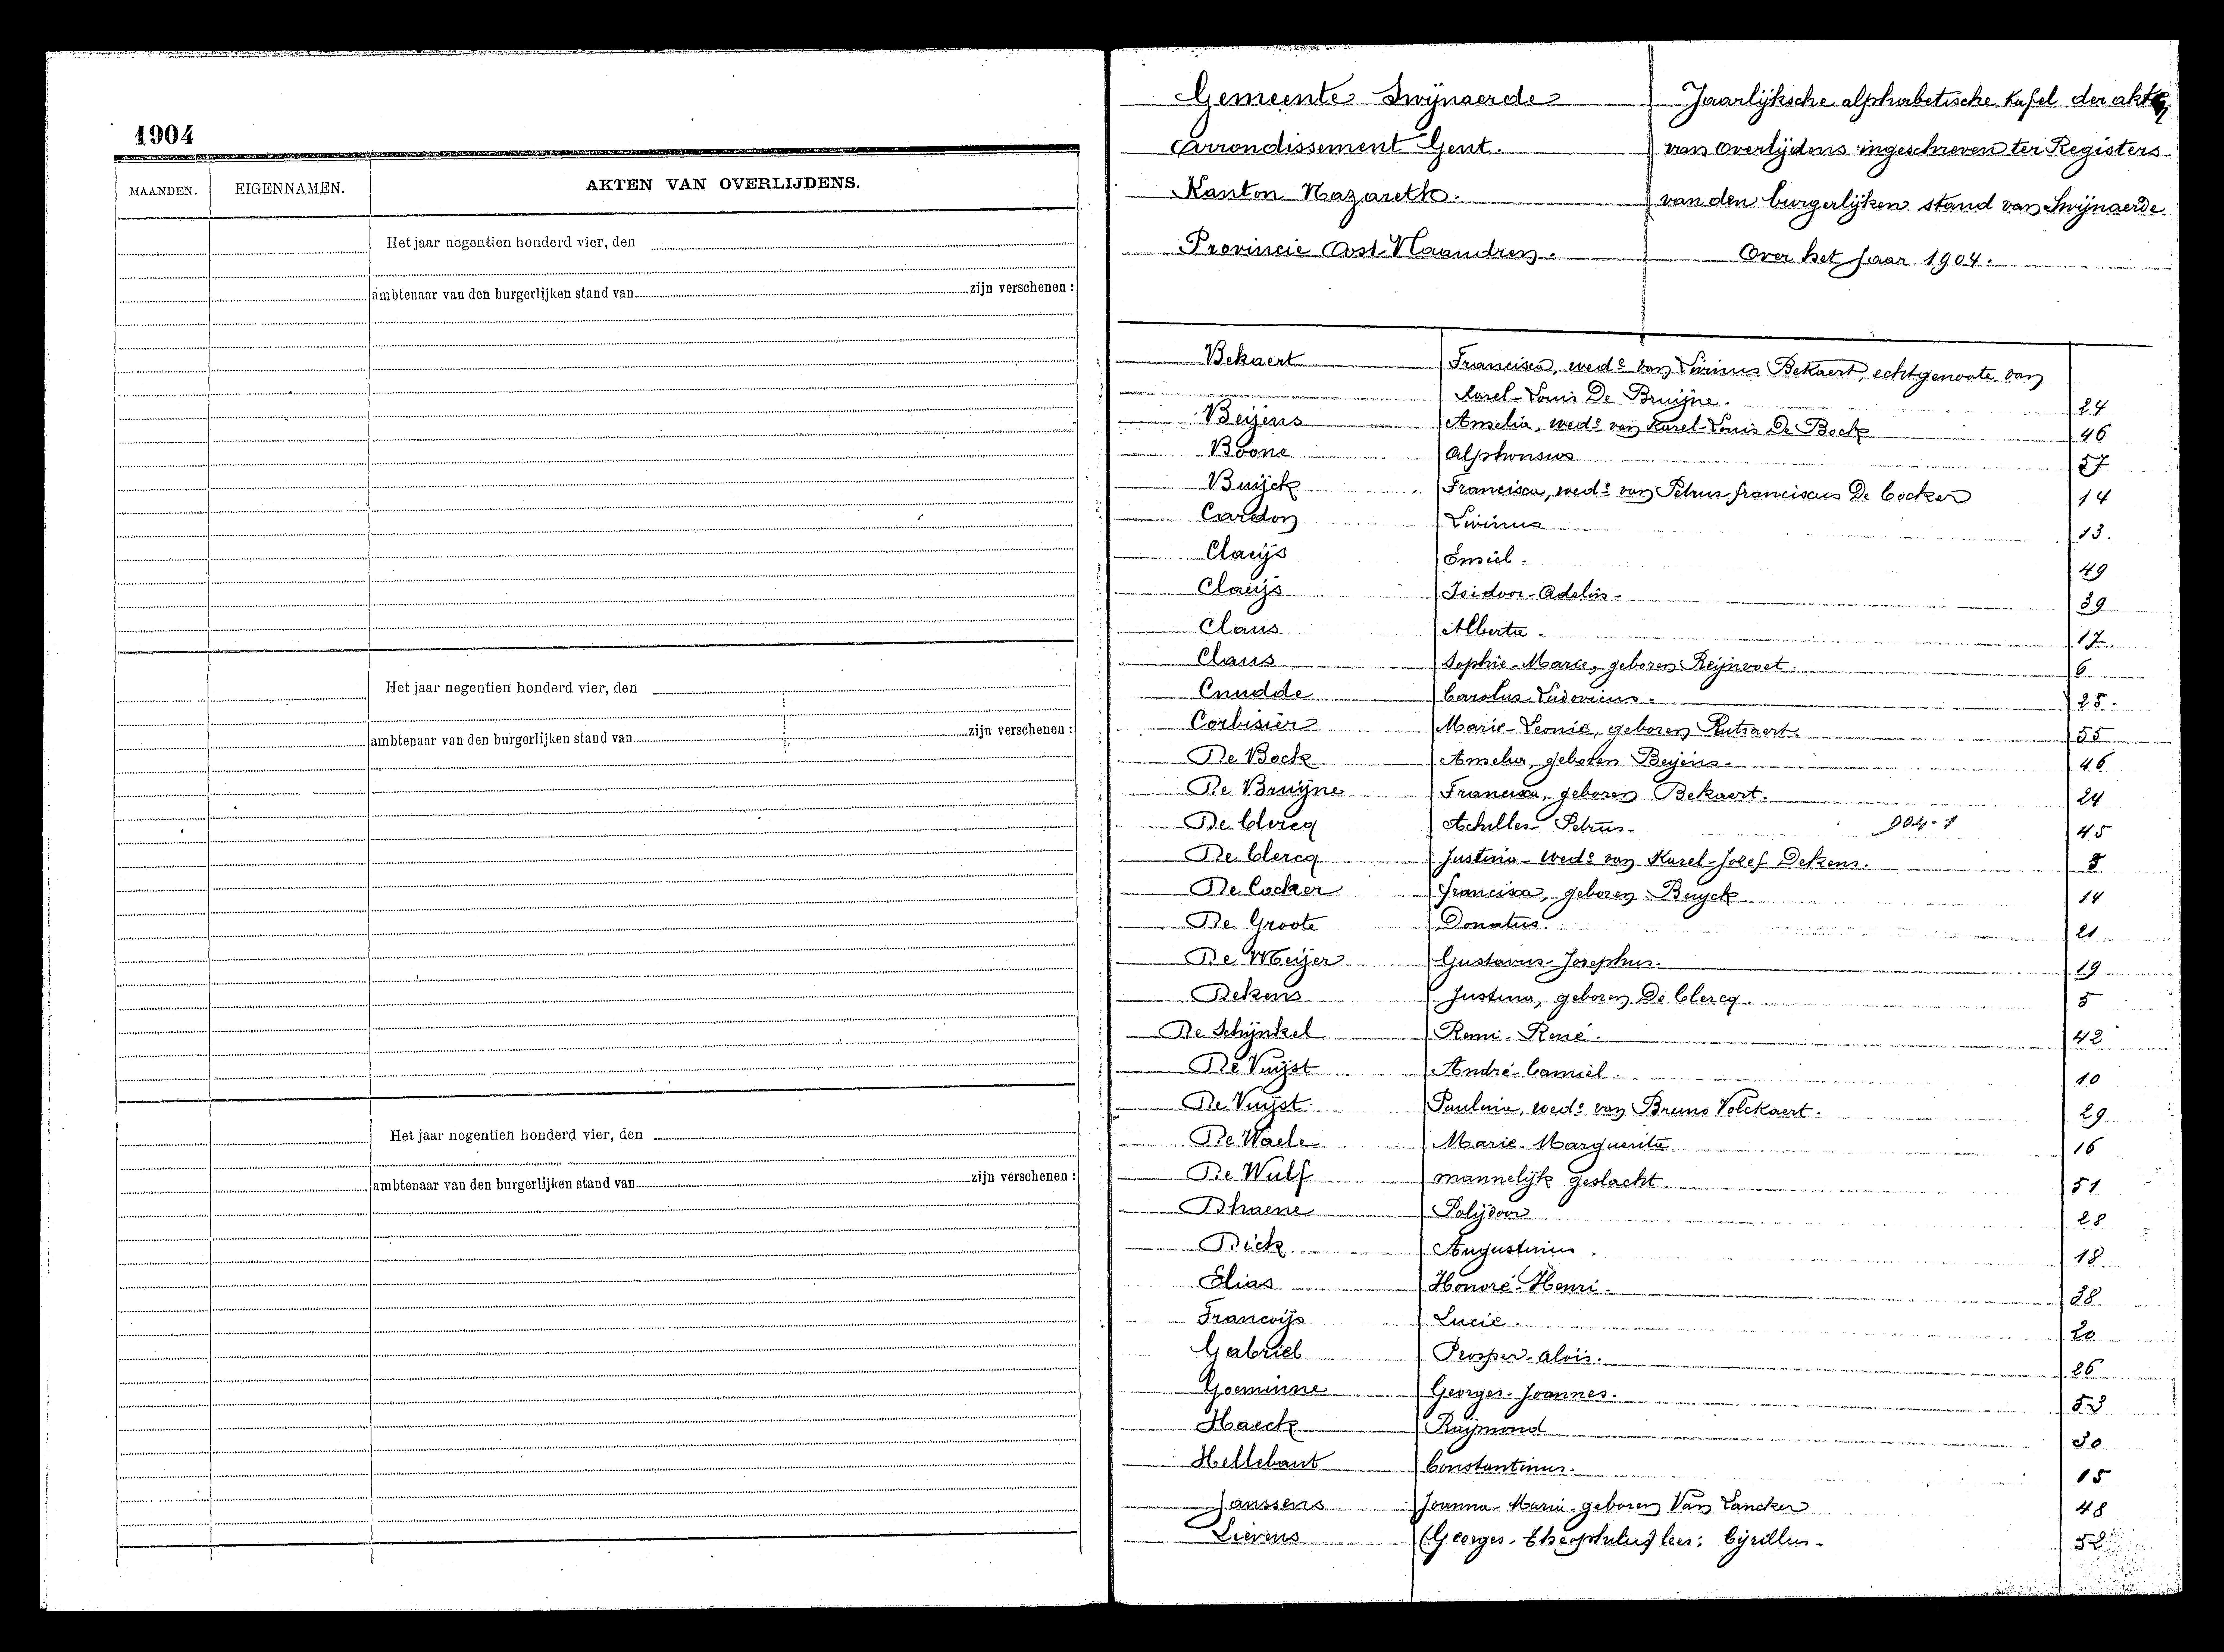 1904
MAANDEN. EIGENNAMEN. AKTEN VAN OVERLIJDENS.
Het jaar negentien honderd vier, den
ambtenaar van den burgerlijken stand van zijn verschenen :
Het jaar negentien honderd vier, den
ambtenaar van den burgerlijken stand van zijn verschenen :
Het jaar negentien honderd vier, den
ambtenaar van den burgerlijken stand van zijn verschenen :
Gemeente Swijnaerde Jaarlijksche alphabetische tafel der akten
Arrondissement Gent. van overlijdens ingeschreven ter Registers
Kanton Nazareth. van den burgerlijken stand van Swijnaerde
Provincie Oost-Vlaandren. Over het Jaar 1904.
Bekaert Francisca, wede van Livinus Bekaert, echtgenoote van
Karel-Louis De Bruijne. 24
Beijens Amelia, wede van Karel-Louis De Bock 46
Boone Alphonsus 57
Buijck Francisca, wede van Petrus franciscus De Cocker 14
Cardon Livinus 13.
Claeijs Emiel. 49
Claeijs Isidoor-Adelin- 39
Claus Alberta. 17.
Claus Sophie-Marie, geboren Reijnvoet. 6
Cnudde Carolus-Ludovicus- 25.
Corbisier Marie-Leonie, geboren Rutsaert. 55
De Bock Amelia, geboren Beijens- 46
De Bruijne Francisca, geboren Bekaert. 24
De Clercq Achilles-Petrus- 904-1 45
De Clercq Justina-wede van Karel-Josef Dekens. 5
De Cocker francisca, geboren Buyck 14
De Groote Donatus. 21
De Meijer Gustavus-Josephus. 19
Dekens Justina, geboren De Clercq. 5
De Schijnkel Remi-René. 42
De Vuijst André-Camiel. 10
De Vuijst Paulina, wede van Bruno Volckaert. 29
De Waele Marie-Marguerite 16
De Wulf mannelijk geslacht. 51
Dhaene Polijdoor 28
Dick Augustinus. 18
Elias Honoré-Henri. 38
Francoijs Lucie. 20
Gabriel Prosper-Aloïs. 26
Goeminne Georges-Joannes. 53
Haeck Raijmond 30
Hellebaut Constantinus. 15
Janssens Joanna-Maria-geboren Van Lancker 48
Lievens (Georges-theophilus) lees: Cijrillus- 52